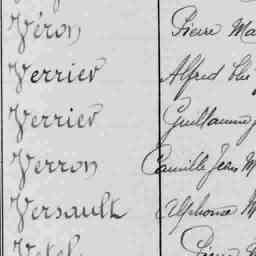 Véron Pierre Ma
Verrier Alfred
Verrier Guillaume
Verron Camille Jean M
Versault Alphonse M
Vétel Pierre